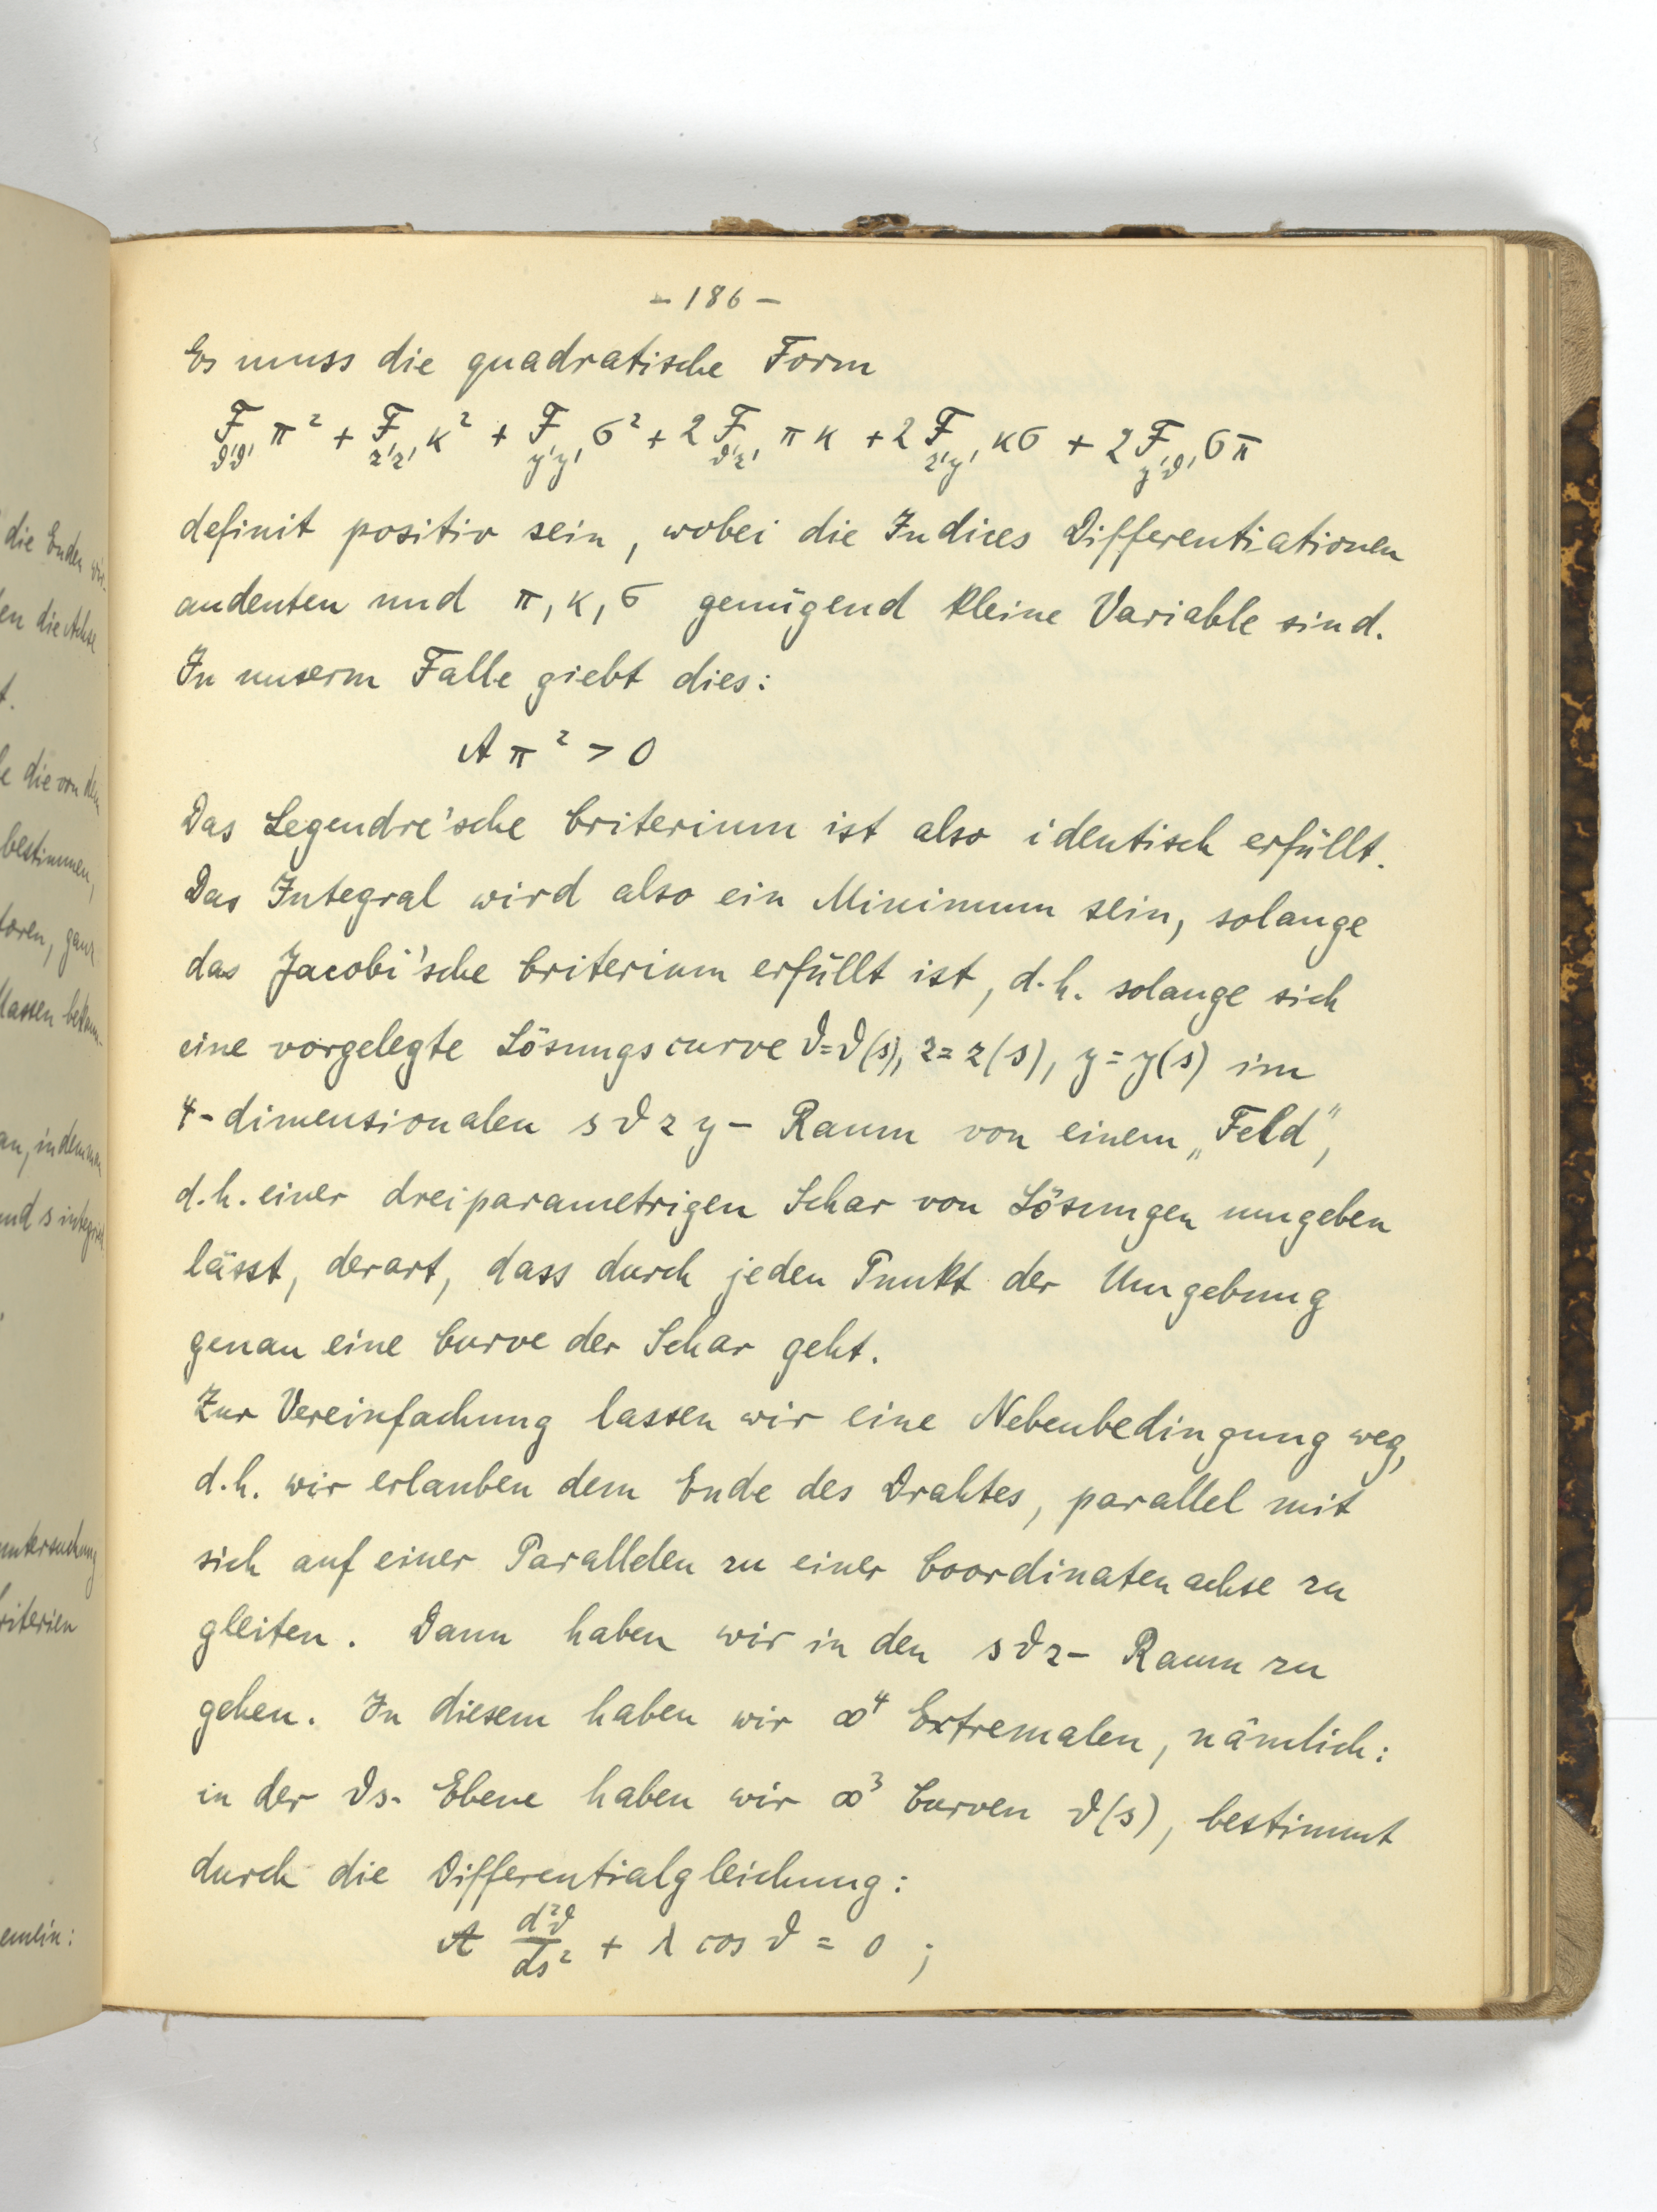 - 186 -
Es muss die quadratische Form
F_{ϑ'ϑ'} π² + F_{z'z'} κ² + F_{y'y'} σ² + 2 F_{ϑ'z'} π κ + 2 F_{z'y'} κ σ + 2 F_{y'ϑ'} σ π
definit positiv sein, wobei die Indices Differentiationen
andeuten und π, κ, σ genügend kleine Variable sind.
In unserm Falle giebt dies:
A π² > 0
Das Legendre'sche Criterium ist also identisch erfüllt.
Das Integral wird also ein Minimum sein, solange
das Jacobi'sche Criterium erfüllt ist, d.h. solange sich
eine vorgelegte Lösungscurve ϑ=ϑ(s), z=z(s), y=y(s) im
4-dimensionalen s ϑ z y - Raum von einem „Feld",
d.h. einer dreiparametrigen Schar von Lösungen umgeben
lässt, derart, dass durch jeden Punkt der Umgebung
genau eine Curve der Schar geht.
Zur Vereinfachung lassen wir eine Nebenbedingung weg,
d.h. wir erlauben dem Ende des Drahtes, parallel mit
sich auf einer Parallelen zu einer Coordinatenachse zu
gleiten. Dann haben wir in den s ϑ z - Raum zu
gehen. In diesem haben wir ∞⁴ Extremalen, nämlich:
in der ϑs- Ebene haben wir ∞³ Curven ϑ(s), bestimmt
durch die Differentialgleichung:
A d²ϑ/ds² + λ cos ϑ = 0 ;
die Enden
die Achse
die von dem
bestimmen,
ganz
indem man
und s